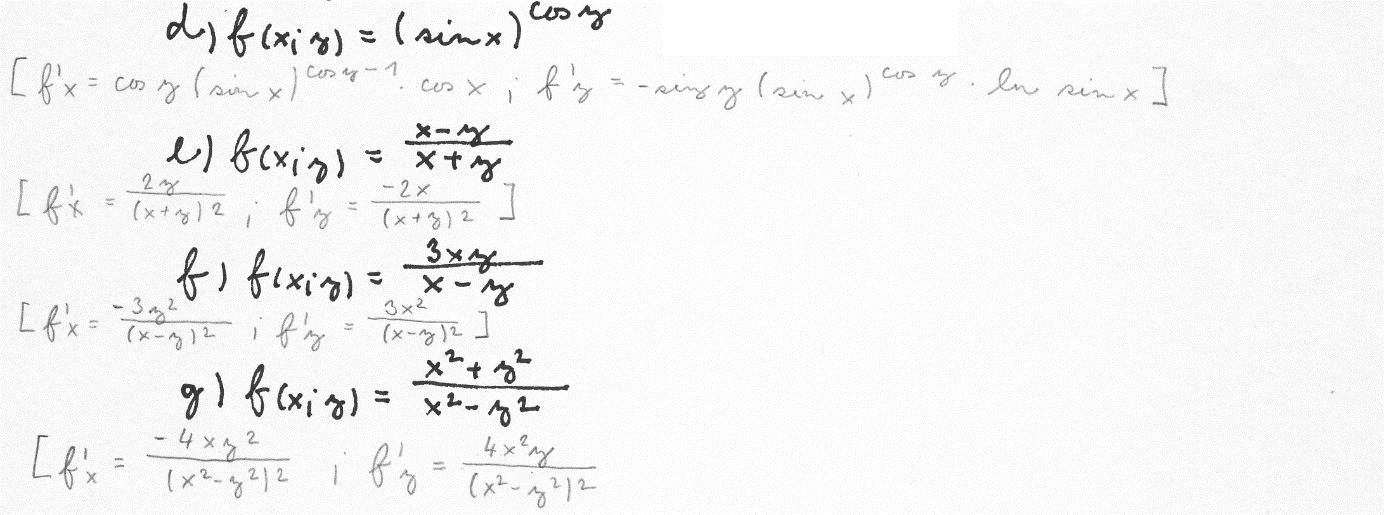 d) f(x;y) = (sin x)^cos y
[f'x = cos y (sin x)^cos y-1 · cos x ; f'y = -sin y (sin x)^cos y · ln sin x]
e) f(x;y) = (x-y)/(x+y)
[f'x = 2y/(x+y)² ; f'y = -2x/(x+y)²]
f) f(x;y) = 3xy/(x-y)
[f'x = -3y²/(x-y)² ; f'y = 3x²/(x-y)²]
g) f(x;y) = (x²+y²)/(x²-y²)
[f'x = -4xy²/(x²-y²)² ; f'y = 4x²y/(x²-y²)²